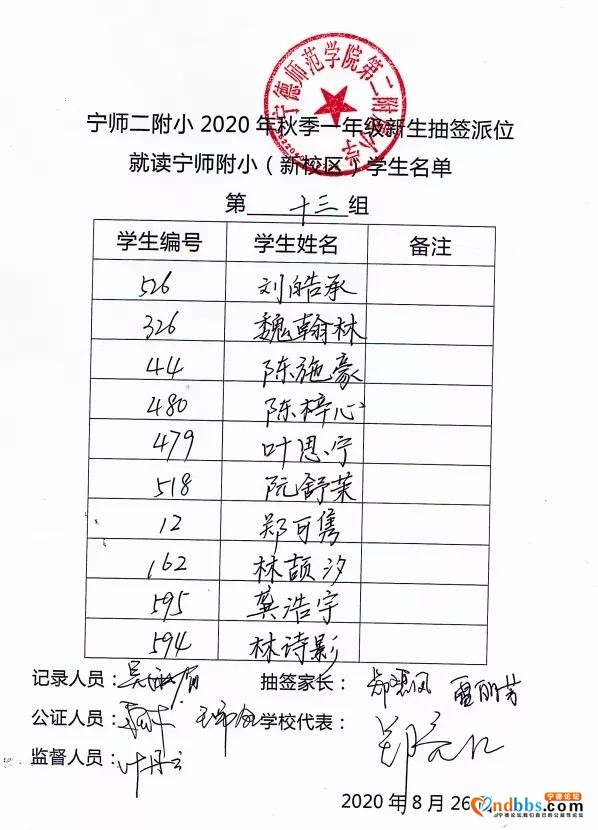 宁德师范学院第二附属小学
宁师二附小2020年秋季一年级新生抽签派位
就读宁师附小（新校区）学生名单
第 十三 组
学生编号 学生姓名 备注
526 刘皓承
326 魏翰林
44 陈施豪
480 陈梓心
479 叶思宁
518 阮舒茉
12 郑可隽
162 林颉汐
595 龚浩宇
594 林诗影
记录人员： 抽签家长： 雷丽芳
公证人员： 学校代表：
监督人员： 叶丹云
2020年8月26
宁德论坛
ndbbs.com
宁德论坛,我们自己的公益性论坛